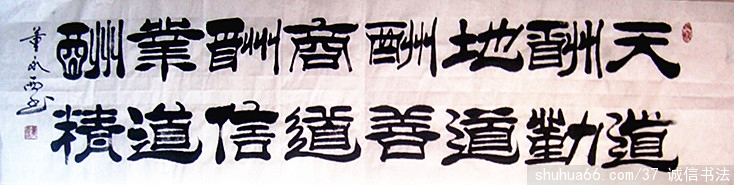 天道
酬勤
地道
酬善
商道
酬信
業道
酬精
董永西书
shuhua66.com/37 诚信书法